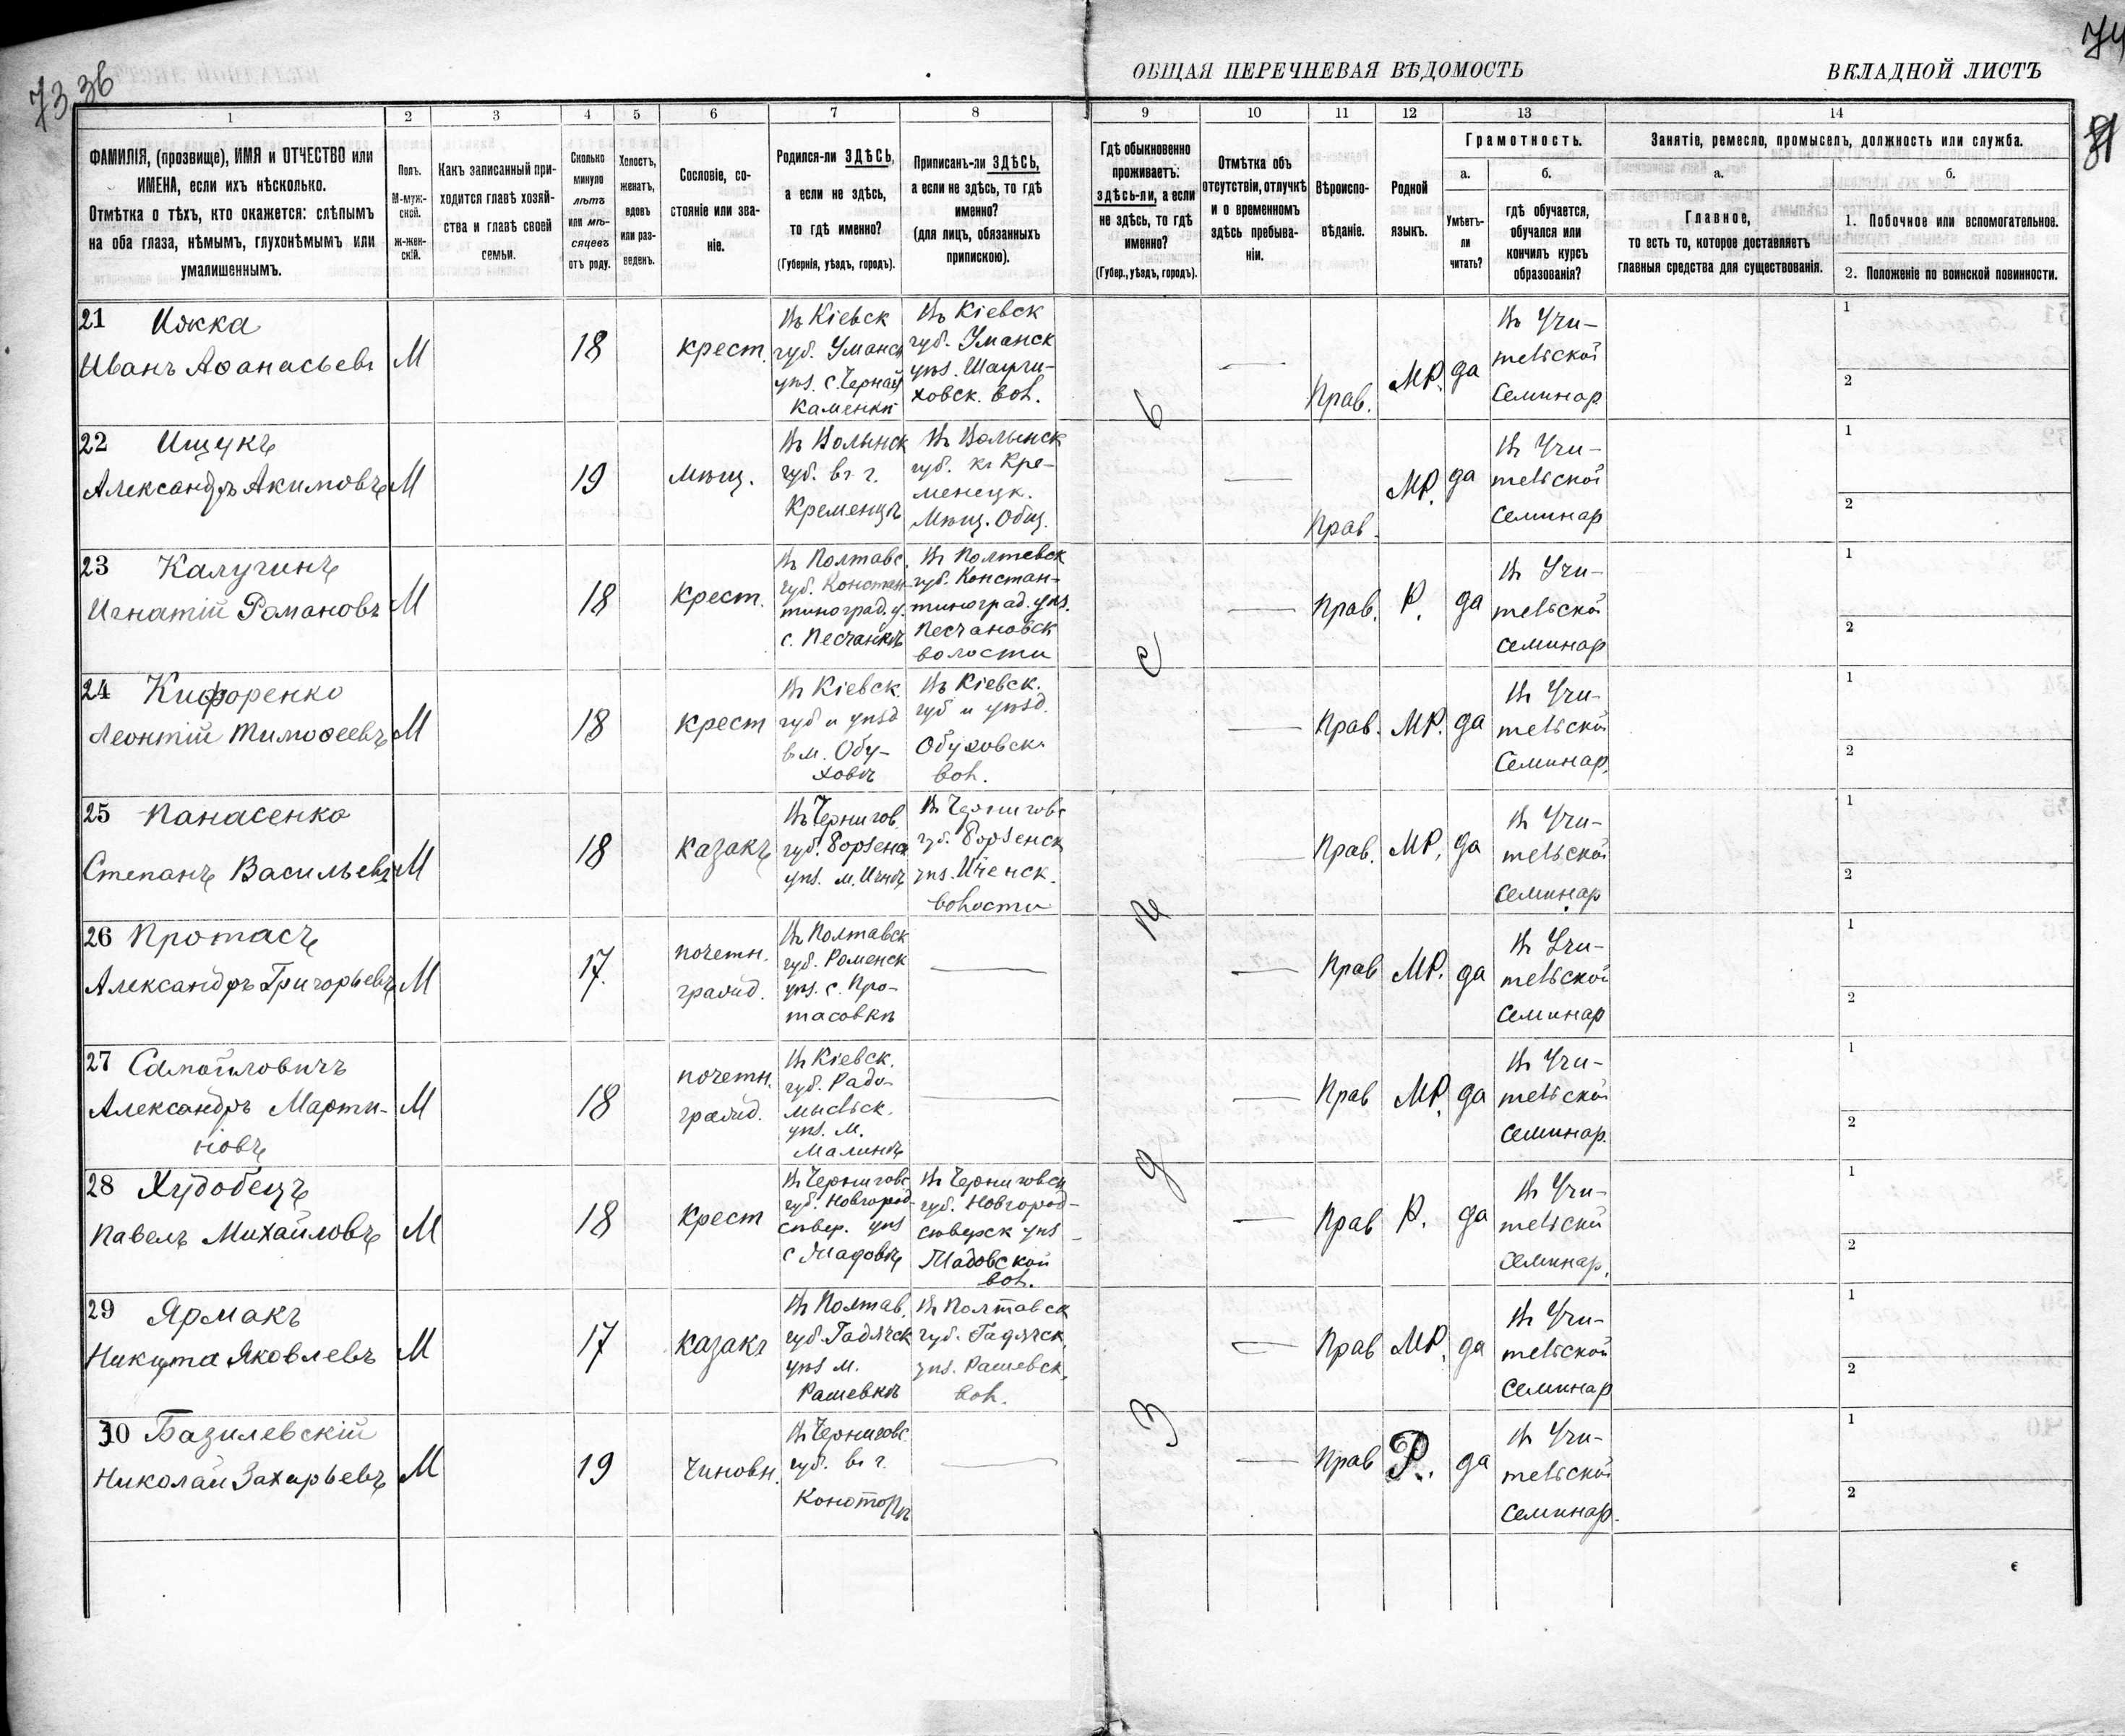 73 36
74
ОБЩАЯ ПЕРЕЧНЕВАЯ ВѢДОМОСТЬ
ВКЛАДНОЙ ЛИСТЪ
1
2
3
4
5
6
7
8
9
10
11
12
13
14
ФАМИЛІЯ, (прозвище), ИМЯ и ОТЧЕСТВО или
ИМЕНА, если ихъ нѣсколько.
Отмѣтка о тѣхъ, кто окажется: слѣпымъ
на оба глаза, нѣмымъ, глухонѣмымъ или
умалишеннымъ.
Полъ.
М-муж-
ской.
ж-жен-
скій.
Какъ записанный при-
ходится главѣ хозяй-
ства и главѣ своей
семьи.
Сколько
минуло
лѣтъ
или мѣ-
сяцевъ
отъ роду.
Холостъ,
женатъ,
вдовъ
или раз-
веденъ.
Сословіе, со-
стояніе или зва-
ніе.
Родился-ли ЗДѢСЬ,
а если не здѣсь,
то гдѣ именно?
(Губернія, уѣздъ, городъ).
Приписанъ-ли ЗДѢСЬ,
а если не здѣсь, то гдѣ
именно?
(для лицъ, обязанныхъ
припискою).
Гдѣ обыкновенно
проживаетъ:
здѣсь-ли, а если
не здѣсь, то гдѣ
именно?
(Губер., уѣздъ, городъ).
Отмѣтка объ
отсутствіи, отлучкѣ
и о временномъ
здѣсь пребыва-
ніи.
Вѣроиспо-
вѣданіе.
Родной
языкъ.
Грамотность.
а.
Умѣетъ-
ли
читать?
б.
гдѣ обучается,
обучался или
кончилъ курсъ
образованія?
Занятіе, ремесло, промыселъ, должность или служба.
а.
Главное,
то есть то, которое доставляетъ
главныя средства для существованія.
б.
1. Побочное или вспомогательное.
2. Положеніе по воинской повинности.
21 Ижка
Иванъ Аѳанасьевъ
М
18
крест.
Въ Кіевск
губ. Уманск
уѣз. с. Черной
Каменкѣ
Въ Кіевск
губ. Уманск
уѣз.
ховск. вол.
—
Прав.
МР.
да
въ Учи-
тельской
Семинар.
1
2
22 Ищукъ
Александръ Акимовъ
М
19
мѣщ.
Въ Волынск
губ. въ г.
Кременцѣ
Въ Волынск
губ. къ Кре-
менецк.
Мѣщ. Общ.
—
Прав.
МР.
да
въ Учи-
тельской
Семинар
1
2
23 Калугинъ
Игнатій Романовъ
М
18
крест.
въ Полтавс.
губ. Констан-
тиноград. у.
с. Песчанкѣ
въ Полтавск
губ. Констан-
тиноград. уѣз.
Песчановск
волости
—
Прав.
Р.
да
въ Учи-
тельской
Семинар
1
2
24 Кифоренко
Леонтій Тимоѳеевъ
М
18
крест
въ Кіевск.
губ и уѣзд
в м. Обу-
ховѣ
въ Кіевск.
губ и уѣзд.
Обуховск.
вол.
—
Прав.
МР.
да
въ Учи-
тельской
Семинар.
1
2
25 Панасенко
Степанъ Васильевъ
М
18
казакъ
въ Чернигов.
губ. Борзенск
уѣз. м. Ичнѣ
въ Черниговс
губ. Борзенск
уѣз. Иченск.
волости
—
Прав.
МР.
да
въ Учи-
тельской
Семинар
1
2
26 Протасъ
Александръ Григорьевъ
М
17.
почетн.
гражд.
въ Полтавск
губ. Роменск
уѣз. с. Про-
тасовкѣ
—
—
Прав
МР.
да
въ Учи-
тельской
Семинар
1
2
27 Самойловичъ
Александръ Марти-
новъ
М
18
почетн.
гражд.
въ Кіевск.
губ. Радо-
мысльск.
уѣз. м.
Малинѣ
—
—
Прав
МР.
да
въ Учи-
тельской
Семинар.
1
2
28 Худобецъ
Павелъ Михайловъ
М
18
Крест
въ Черниговс
губ. Новгород-
сѣвер. уѣз
с
въ Черниговск
губ. Новгород-
сѣверск уѣз
вол.
—
Прав
Р.
да
въ Учи-
тельской
Семинар.
1
2
29 Ярмакъ
Никита Яковлевъ
М
17
казакъ
въ Полтав.
губ. Гадячск
уѣз м.
Рашевкѣ
въ Полтавск
губ. Гадячск.
уѣз. Рашевск.
вол.
—
Прав
МР.
да
въ Учи-
тельской
Семинар
1
2
30 Базилевскій
Николай Захарьевъ
М
19
Чиновн.
въ Черниговс
губ. въ г.
Конотопѣ
—
—
Прав
Р.
да
въ Учи-
тельской
Семинар.
1
2
З д ѣ с ь